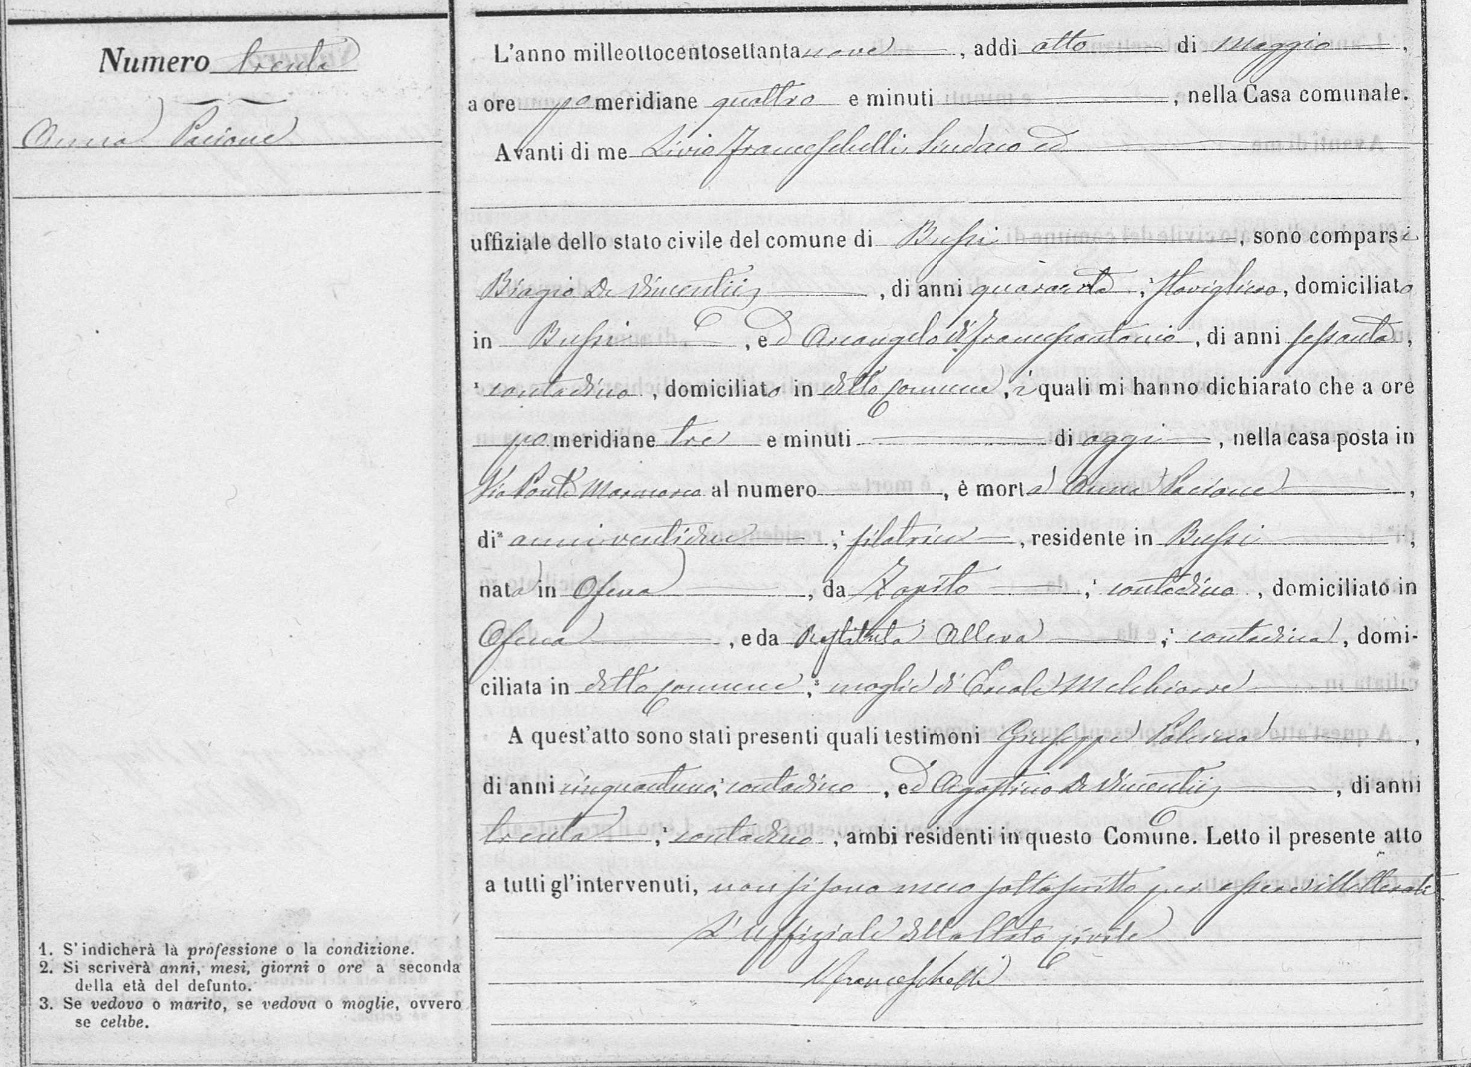 Numero trenta
Anna Pacione
L'anno milleottocentosettantanove, addì otto di Maggio,
a ore pomeridiane quattro e minuti, nella Casa comunale.
Avanti di me Livio Franceschelli Sindaco ed
uffiziale dello stato civile del comune di Bussi, sono comparsi
Biagio De Vincentiis, di anni quaranta, stovigliero, domiciliato
in Bussi, ed Arcangelo di Francescantonio, di anni sessanta,
contadino, domiciliato in detto comune, i quali mi hanno dichiarato che a ore
pomeridiane tre e minuti di oggi, nella casa posta in
Via Ponte Marmoreo al numero, è morta Anna Pacione,
di anni ventidue, filatrice, residente in Bussi,
nata in Ofena, da Zopito, contadino, domiciliato in
Ofena, e da Restituta Alleva, contadina, domi-
ciliata in detto comune, moglie di Melchiorre
A quest'atto sono stati presenti quali testimoni Giuseppe Salerno,
di anni cinquantuno, contadino, ed Agostino De Vincentiis, di anni
trenta, contadino, ambi residenti in questo Comune. Letto il presente atto
a tutti gl'intervenuti, non si sono meco sottoscritto per essere illetterati
L'Uffiziale dello Stato Civile
LFranceschelli
1. S'indicherà la professione o la condizione.
2. Si scriverà anni, mesi, giorni o ore a seconda
della età del defunto.
3. Se vedovo o marito, se vedova o moglie, ovvero
se celibe.